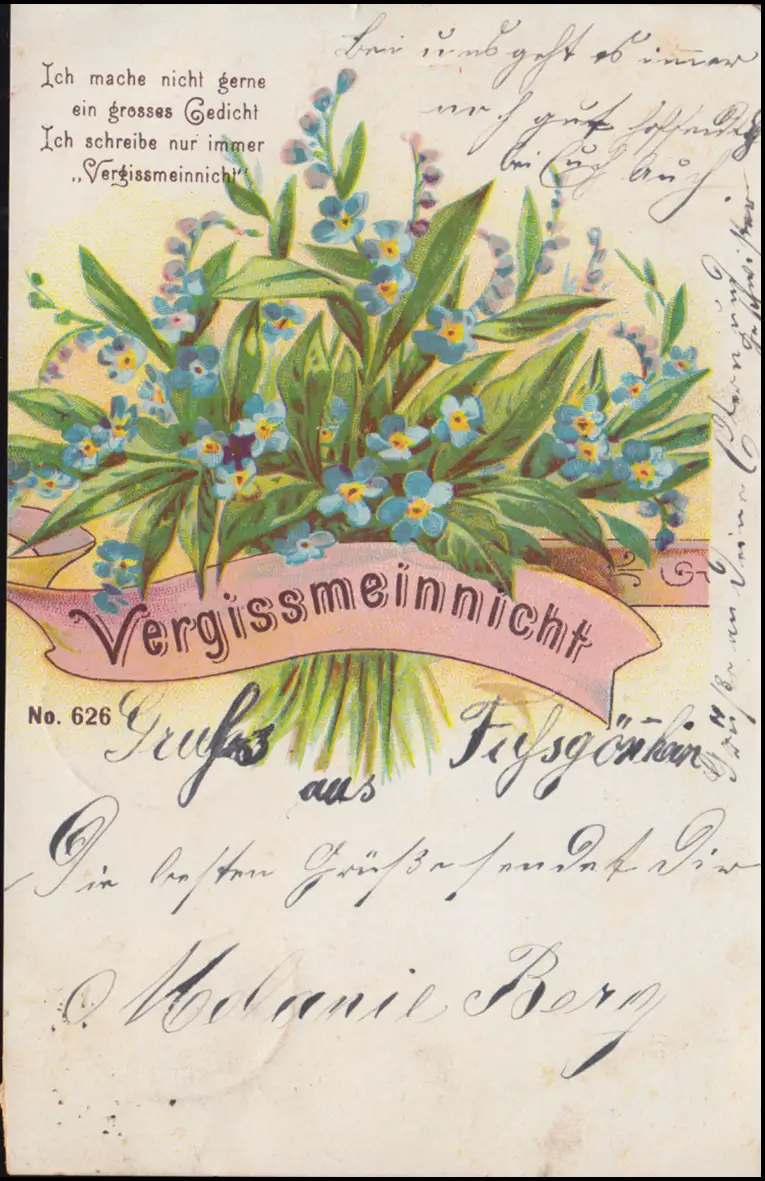 Ich mache nicht gerne
ein grosses Gedicht
Ich schreibe nur immer
„Vergissmeinnicht"
Bei uns geht es immer
noch gut hoffendlich
bei Euch auch.
Vergissmeinnicht
No. 626
Gruss Fussgönheim
aus
Die besten Grüße sendet Dir
Melanie Berg
Grüße an Deine Eltern und
Geschwister